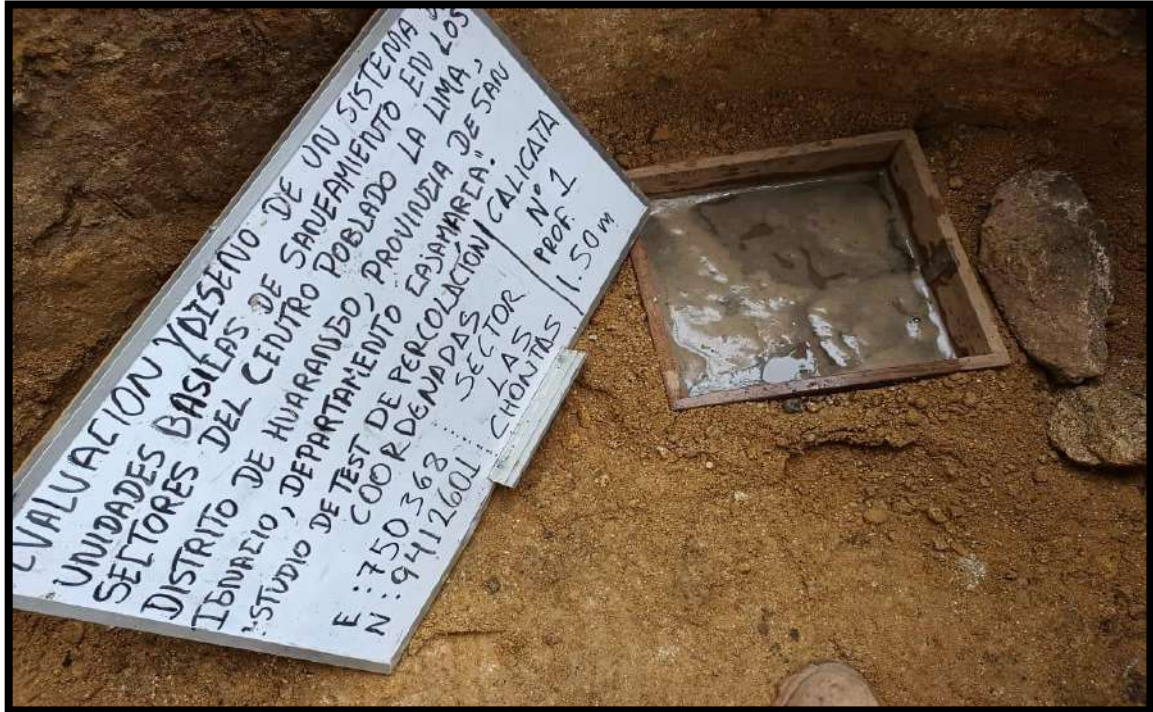 EVALUACION Y DISEÑO DE UN SISTEMA
UNIDADES BASICAS DE SANEAMIENTO EN LOS
SECTORES DEL CENTRO POBLADO LA LIMA,
DISTRITO DE HUARANGO, PROVINCIA DE SAN
IGNACIO, DEPARTAMIENTO CAJAMARCA".
ESTUDIO DE TEST DE PERCOLACIÓN
COORDENADAS
E : 750 368
N : 9412601
SECTOR
LAS
CHONTAS
CALICATA
N° 1
PROF.
1.50 m